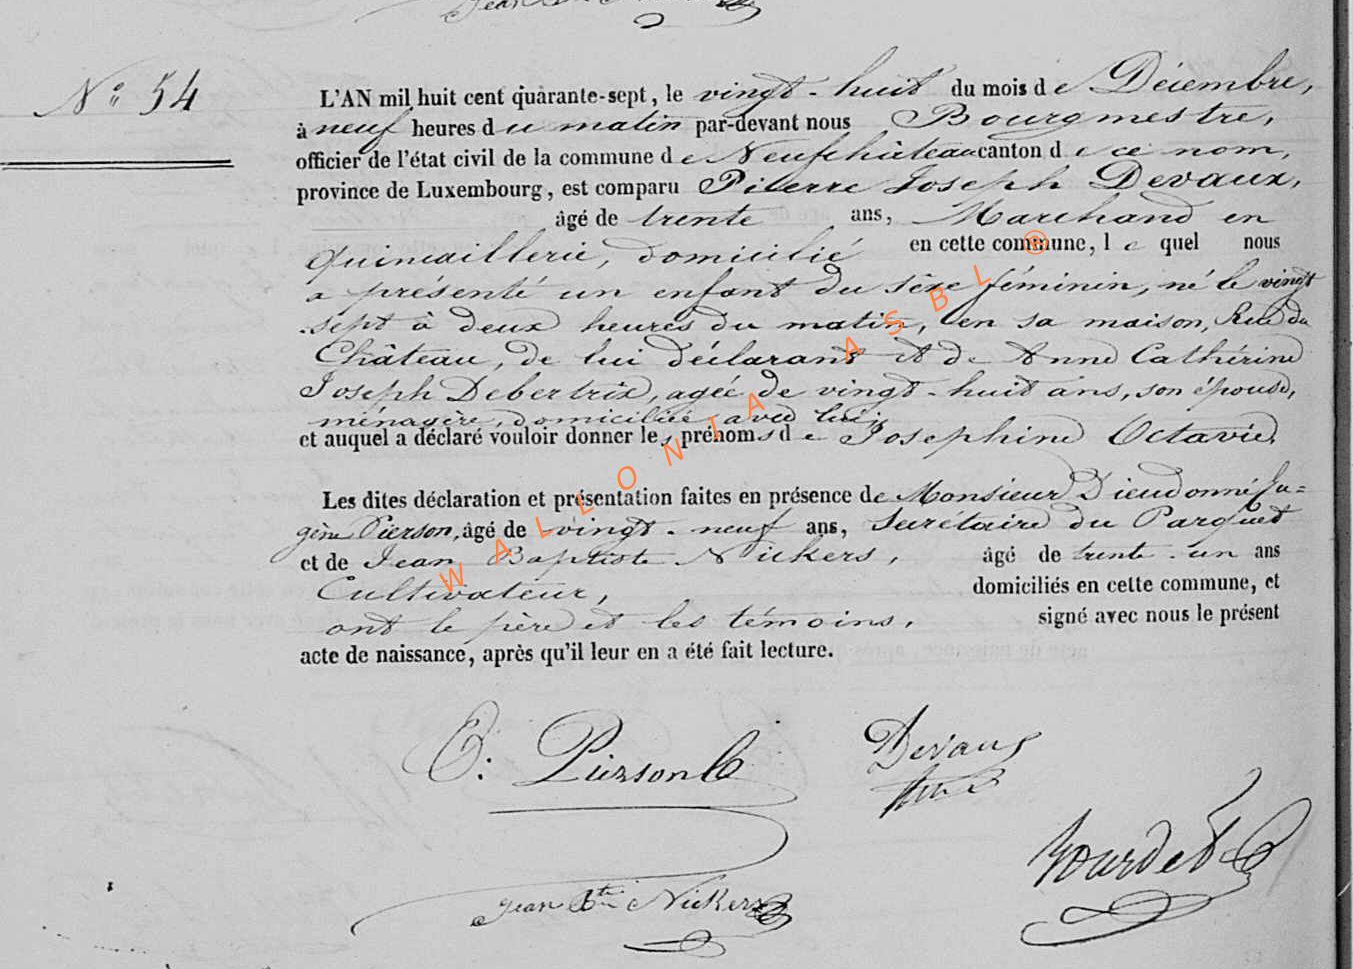 Jean
N° 54
L'AN mil huit cent quarante-sept, le vingt-huit du mois de Décembre,
à neuf heures du matin par-devant nous Bourgmestre,
officier de l'état civil de la commune de Neufchâteau canton de ce nom,
province de Luxembourg, est comparu Pierre Joseph Devaux,
âgé de trente ans, Marchand en
quincaillerie, domicilié en cette commune, lequel nous
a présenté un enfant du sèxe féminin, né le vingt
sept à deux heures du matin, en sa maison, Rue du
Château, de lui déclarant et de Anne Cathérine
Joseph Debertrix, agée de vingt-huit ans, son épouse,
ménagère, domiciliée avec lui,
et auquel a déclaré vouloir donner les prénoms de Josephine Octavie.
Les dites déclaration et présentation faites en présence de Monsieur Dieudonné Eu=
gène Pierson, âgé de vingt-neuf ans, Secrétaire du Parquet
et de Jean Baptiste Nickers, âgé de trente-un ans
Cultivateur, domiciliés en cette commune, et
ont le père et les témoins, signé avec nous le présent
acte de naissance, après qu'il leur en a été fait lecture.
E: Pierson
Devaux
Bourdet
Jean Bte Nickers
WALLONIA ASBL ®